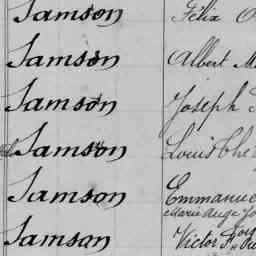 Samson Félix
Samson Albert
Samson Joseph
Samson Louis
Samson Emmanuel
Marie Ange
Samson Victor